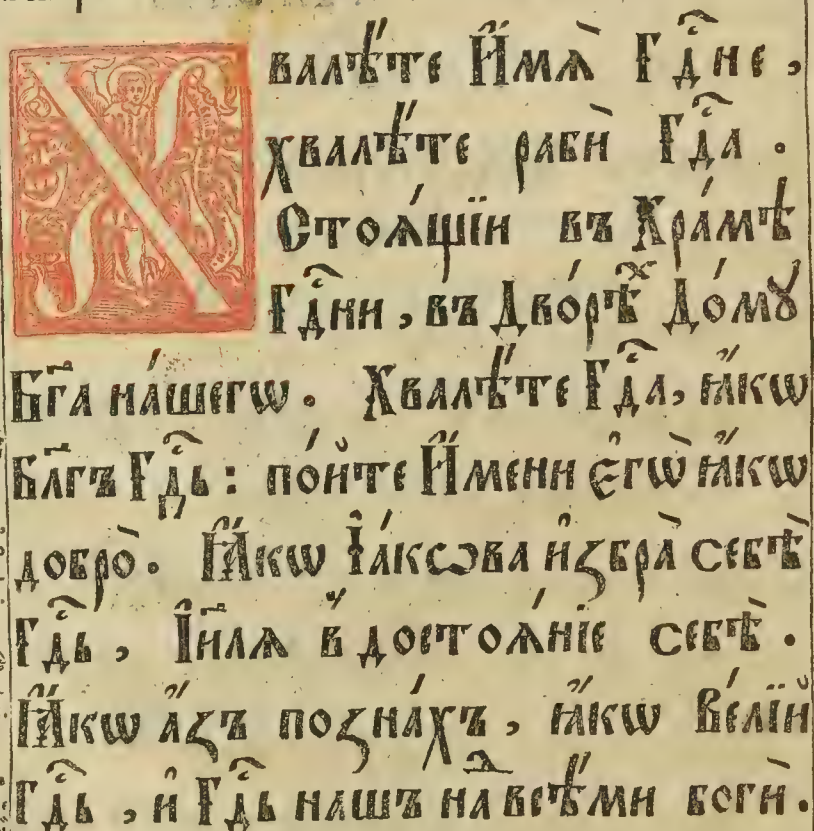 Хвалѣ́те И҆́мѧ̀ Гдⷭ҇не,
хвалѣ́те рабѝ Гдⷭ҇а.
Стоѧ́щїи въ Хра́мѣ
Гдⷭ҇ни, въ Дво́рѣⷯ До́мꙋ
Бг҃а на́шегѡ. Хвалѣ́те Гдⷭ҇а, ꙗ҆́кѡ
бл҃гъ Гдⷭ҇ь: по́йте И҆́мени є҆гѡ̀ ꙗ҆́кѡ
добро̀. Ꙗ҆́кѡ І҆а́кѡва и҆збра̀ себѣ̀
Гдⷭ҇ь, І҆и҃лѧ в достоѧ́нїе себѣ̀.
Ꙗ҆́кѡ а҆́зъ позна́хъ, ꙗ҆́кѡ Ве́лїй
Гдⷭ҇ь, и҆ Гдⷭ҇ь нашъ наⷣ всѣ́ми богѝ.